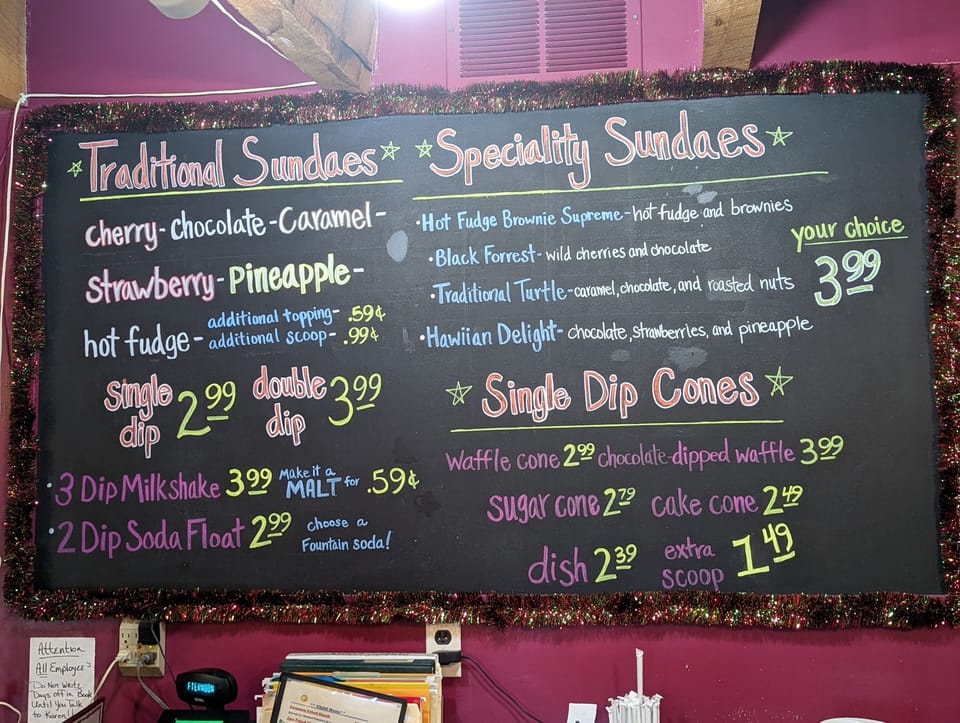 Traditional Sundaes
cherry - chocolate - Caramel -
strawberry - Pineapple -
hot fudge - additional topping - .59¢
additional scoop - .99¢
single dip 2.99 double dip 3.99
· 3 Dip Milkshake 3.99 Make it a MALT for .59¢
· 2 Dip Soda Float 2.99 choose a Fountain soda!
Speciality Sundaes
· Hot Fudge Brownie Supreme - hot fudge and brownies
· Black Forrest - wild cherries and chocolate
· Traditional Turtle - caramel, chocolate, and roasted nuts
· Hawiian Delight - chocolate, strawberries, and pineapple
your choice
3.99
Single Dip Cones
waffle cone 2.99 chocolate-dipped waffle 3.99
sugar cone 2.79 cake cone 2.49
dish 2.39 extra scoop 1.49
Attention
All Employee's
Do Not Write
Days off in Book
Until You Talk
to Karen!
AFTERNOON